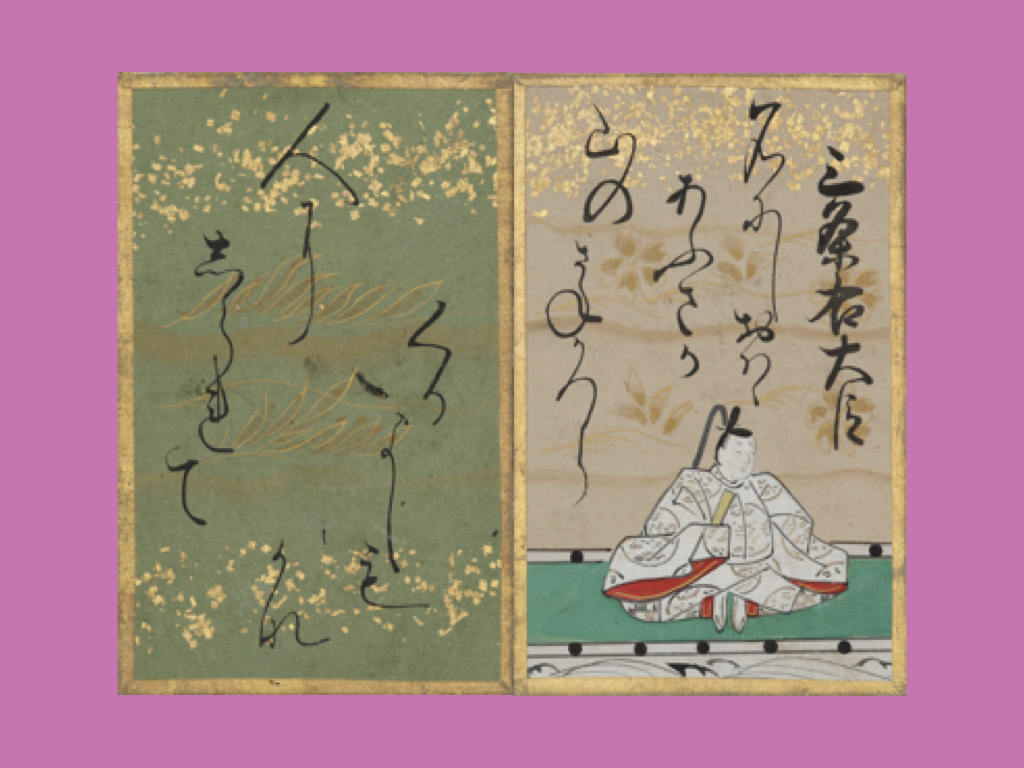 三条右大臣
名にしおはゝ
あふさか
山の
さねかつら
人に
しられて
くる
よしも
かな